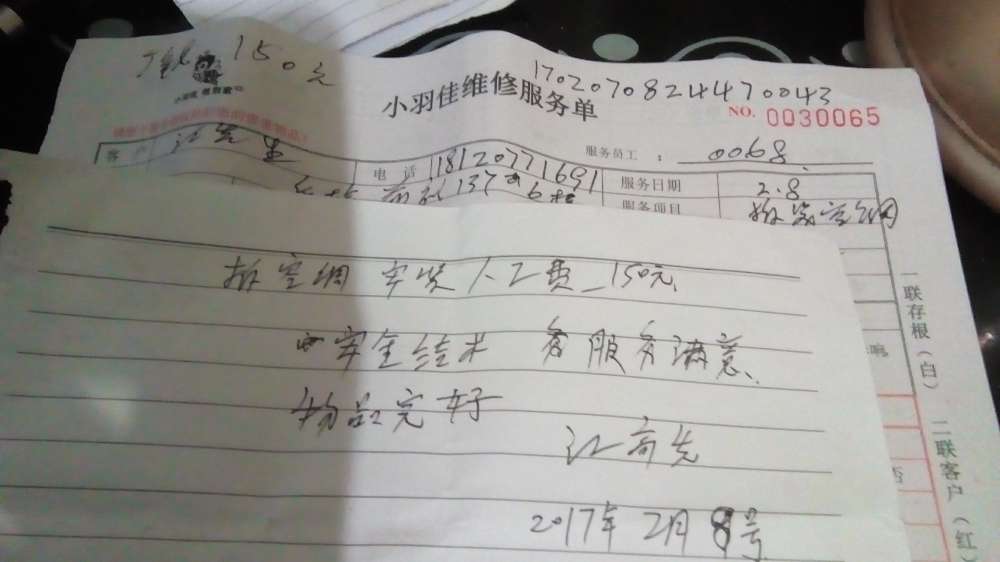 150元
小羽佳维修服务单
17020708244470043
NO. 0030065
服务员工: 0068
客户 江先生 电话 18120771691 服务日期 2.8
137 6 服务项目
拆空调 安装人工费 150元
安全结术 服务满意
物品完好
江高先
2017年2月8号
一联存根(白) 二联客户(红)